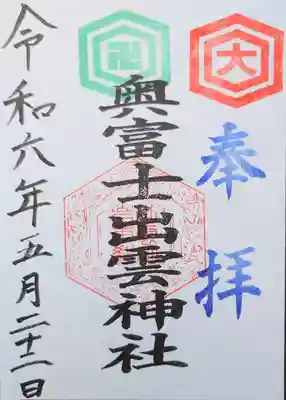 大
奉拝
卍
奥富士出雲神社
令和六年五月二十二日